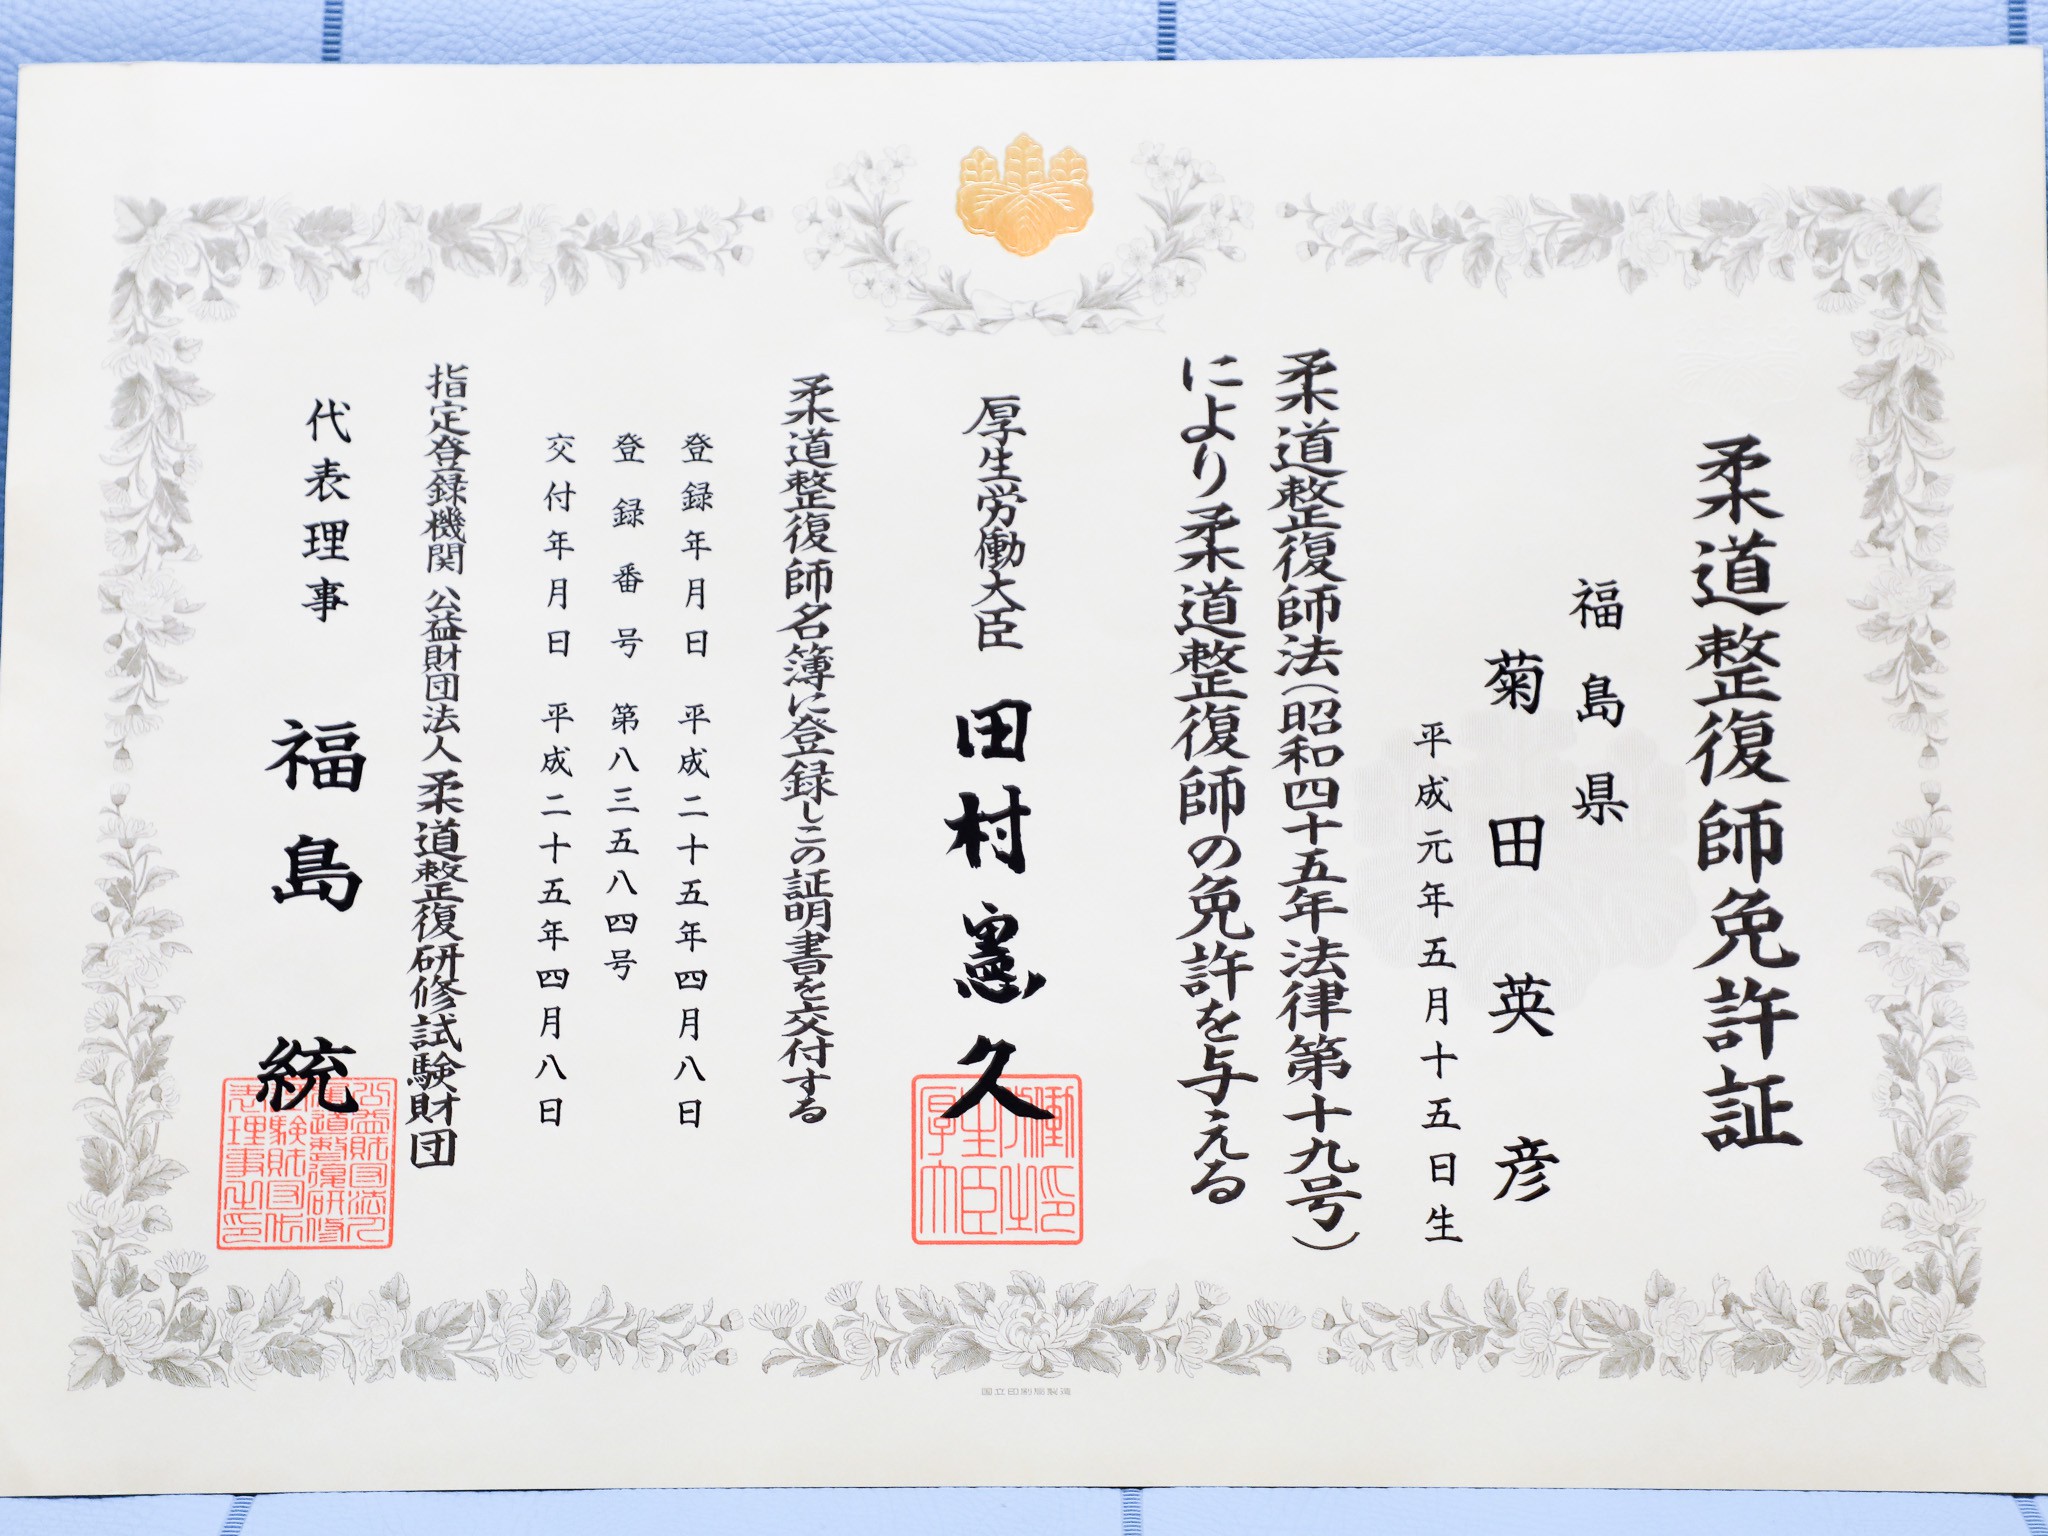 柔道整復師免許証
福島県
菊田英彦
平成元年五月十五日生
柔道整復師法（昭和四十五年法律第十九号）
により柔道整復師の免許を与える
厚生労働大臣 田村憲久
厚生労働大臣之印
柔道整復師名簿に登録しこの証明書を交付する
登録年月日 平成二十五年四月八日
登録番号 第八三五八四号
交付年月日 平成二十五年四月八日
指定登録機関 公益財団法人 柔道整復研修試験財団
代表理事 福島統
国立印刷局製造